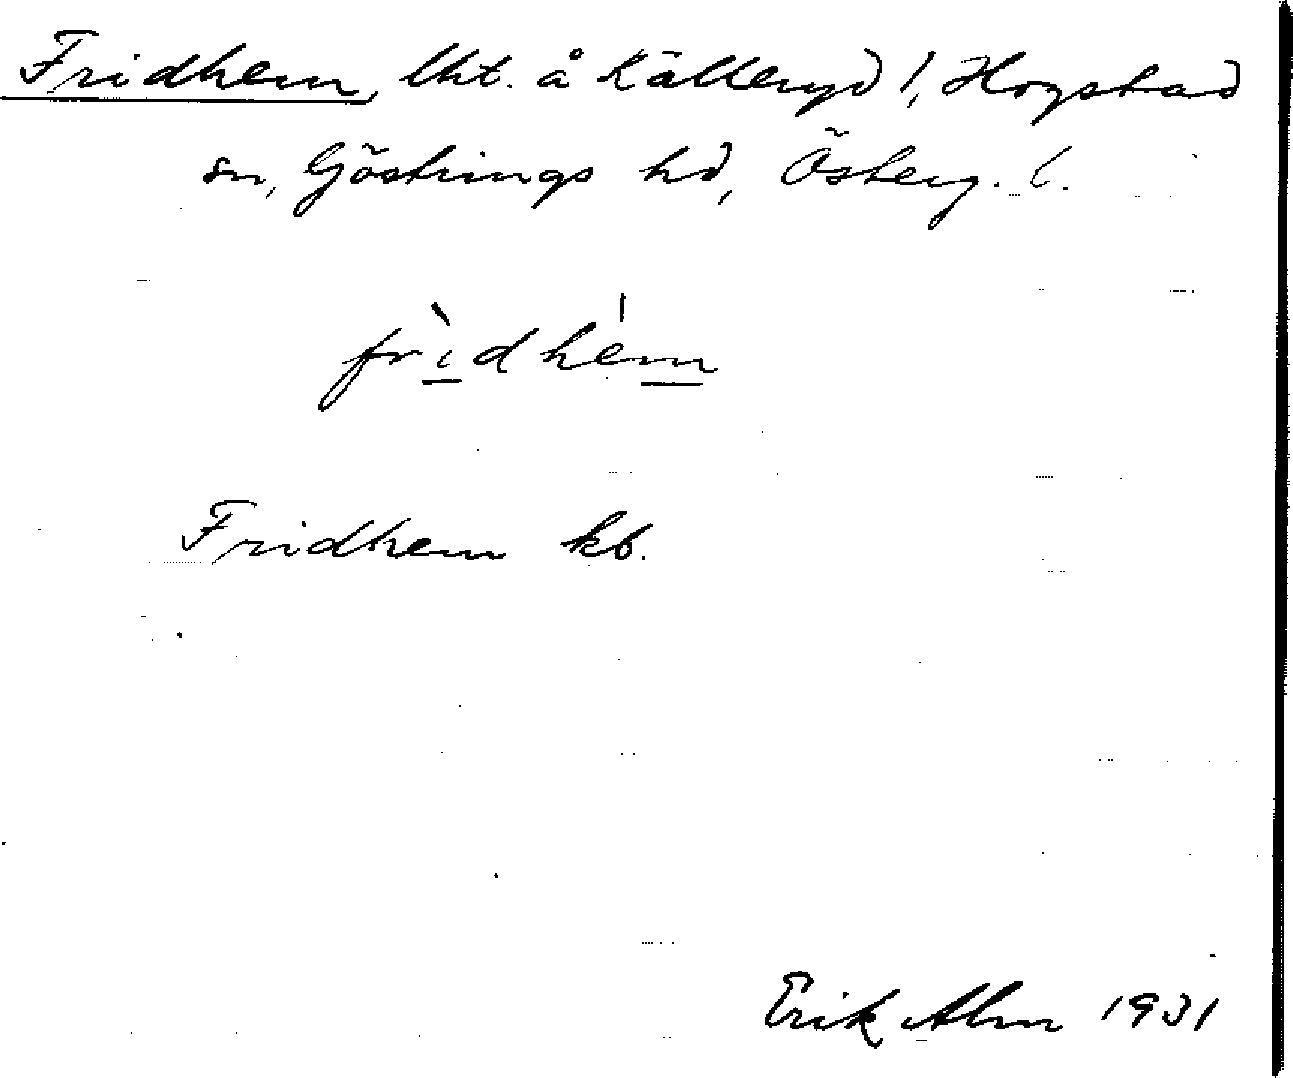 Fridhem, lht. å Källeryd 1, Hogstad
sn, Göstrings hd, Österg. l.
frìdhém
Fridhem kb.
Erik Alm 1931